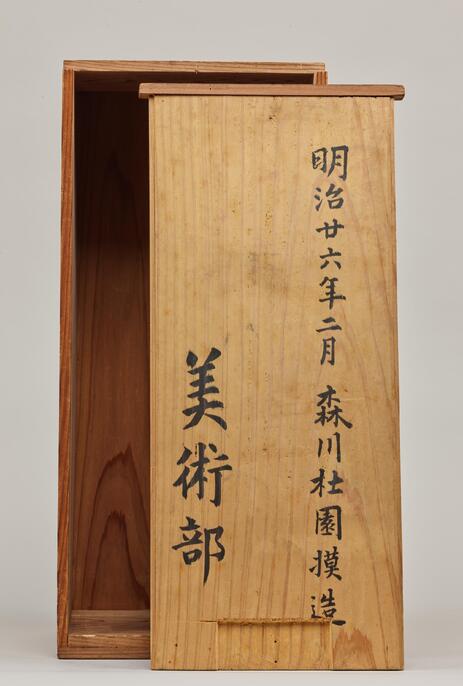 明治廿六年二月 森川杜園摸造
美術部